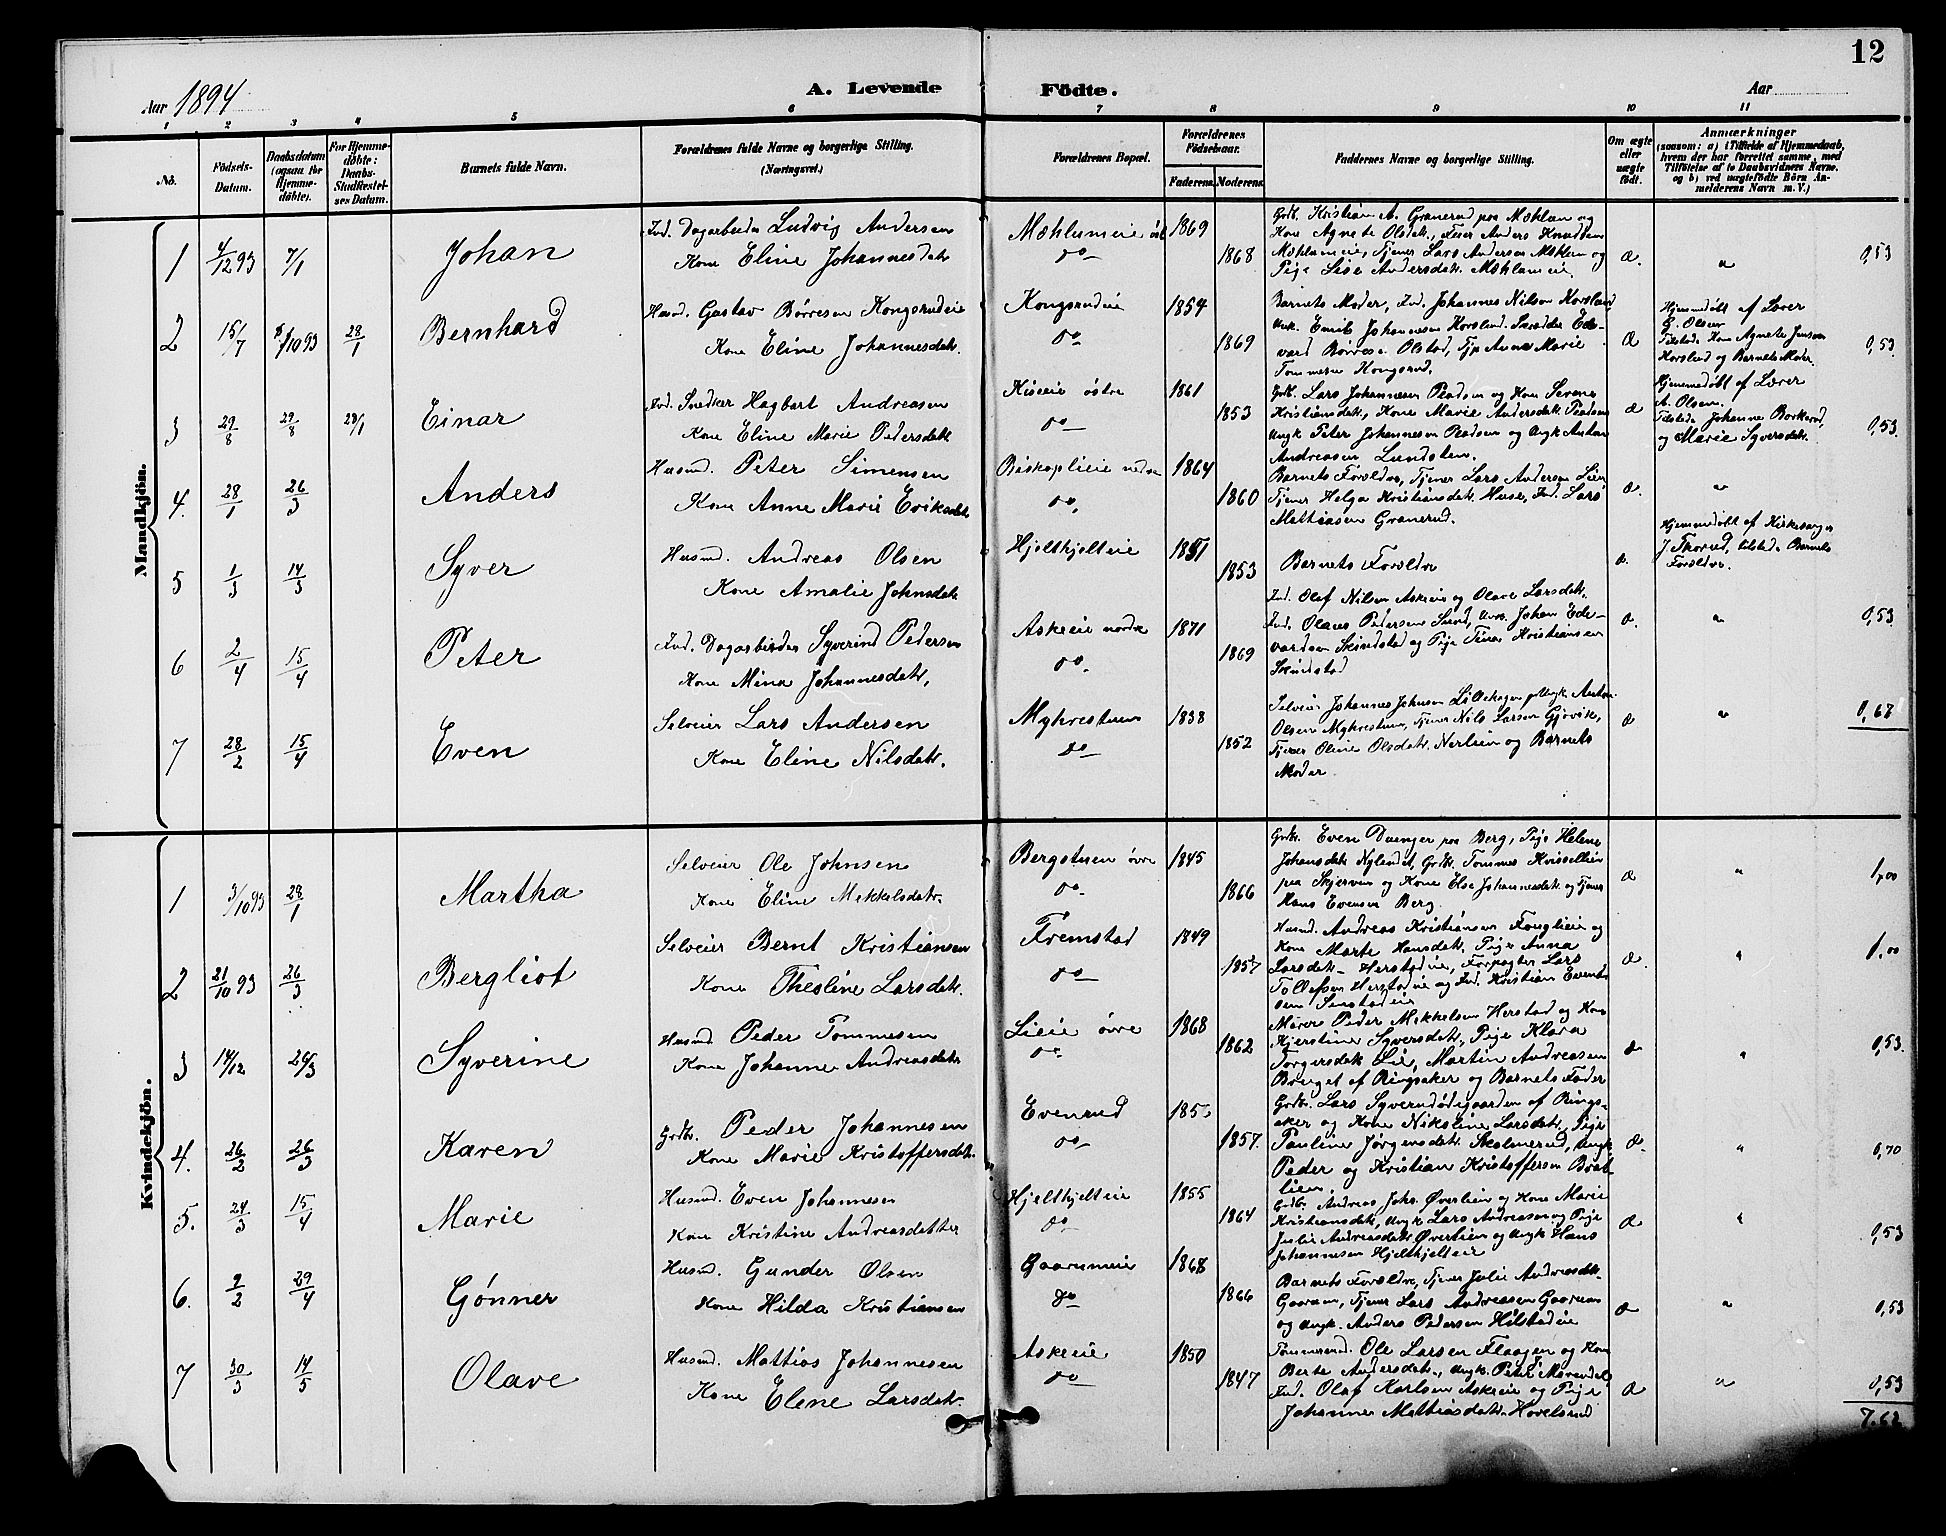 12
Aar 1894
A. Levende Födte.
Aar
1 2 3 4 5 6 7 8 9 10 11
No.
Födsels-Datum.
Daabsdatum (ogsaa for Hjemmedöbte).
For Hjemmedöbte: Daabs-Stadfæstelses Datum.
Barnets fulde Navn.
Forældrenes fulde Navne og borgerlige Stilling.
(Næringsvei.)
Forældrenes Bopæl.
Forældrenes Födselsaar.
Faderens. Moderens.
Faddernes Navne og borgerlige Stilling.
Om ægte eller uægte födt.
Anmærkninger
(saasom: a) i Tilfælde af Hjemmedaab, hvem der har forrettet samme, med Tilföielse af to Daabsvidners Navne, og b) ved uægtefödte Börn Anmelderens Navn m. V.)
Mandkjön.
1 4/12 93 7/1 Johan
Ind. Dagarbeider Ludvig Andersen
Kone Eline Johannesdatr
Mæhlumeie öst 1869
do 1868
Grdb. Kristian A. Granerud paa Mæhlum og
Kone Agnete Olsdatr, Anders Knudsen
Mæhlumeie, Tjener Lars Andersen Mæhlum og
Pige Lise Andersdatr. Mæhlumeie
æ. " 0,53
2 15/7 5/10 93 28/1 Bernhard
Husmd. Gustav Börresen Kongsrudeie
Kone Eline Johannesdatr.
Kongsrudeie 1854
do 1869
Barnets Moder, Ind. Johannes Nilsen Korslund
Ungk. Emil Johannesen Korslund. Skrædder Ede-
vard Börres. Olstad, Tjp Anne Marie
Tommesen Kongsrud.
æ
Hjemmedöbt af Lærer
G. Olsen
Tilstede Kone Agnete Jensen
Korslund og Barnets Moder
0,53
3 29/8 29/8 28/1 Einar
Ind. Snedker Hagbart Andreasen
Kone Eline Marie Pedersdatr
Kiseie östre 1861
do 1853
Grdb. Lars Johannesen Pladsen og Kone Serene
Kristiansdatr, Kone Marie Andersdatr Pladsen
Ungk Peter Johannesen Pladsen og Ungk Anton
Andreasen Lundsten.
æ
Hjemmedöbt af Lærer
A. Olsen.
Tilstede Johanne Borkerud,
og Marie Syversdatr.
0,53.
4. 28/1 26/3 Anders
Husmd. Peter Simensen
Kone Anne Marie Eriksdatr
Biskoplieie nedre 1864
do. 1860
Barnets Forældre, Tjener Lars Andersen Lien
Tjener Helga Kristiansdatr. Huse, Ind. Lars
Mathiasen Granerud.
æ. "
5 1/3 14/3 Syver
Husmd. Andreas Olsen
Kone Amalie Johnsdatr
Hjelthjelteie 1851
1853
Barnets Forældre
æ.
Hjemmedöbt af Kirkesanger
J. Skorud, tilstede Barnets
Forældre.
6 2/4 15/4 Peter
Ind. Dagarbeider Syverind Pedersen
Kone Mina Johannesdatr.
Askreie nordre 1871
do. 1869
Ind. Olaf Nilsen Askreie og Olave Larsdatr.
Ind. Olaus Pedersen Sund, Ungk. Johan Ede-
vardsen Skindstad og Pige Tina Kristiansen
Skindstad
æ. " 0,53
7 28/2 15/4 Even
Selveier Lars Andersen
Kone Eline Nilsdatr.
Myhrestuen 1838
do 1852
Selveier Johannes Johnsen Lillehagen, Ungk. Anton
Olsen Myhrestuen, Tjener Nils Larsen Gjövik,
Tjener Oline Olsdatr. Nerlien og Barnets
Moder.
æ " 0,68
Kvindekjön.
1 3/10 93 28/1 Martha
Selveier Ole Johnsen
Kone Eline Mikkelsdatr.
Bergstuen övre 1845
do. 1866
Grdbr. Even Dænger paa Berg, Pige Helene
Johansdatr Nylendet, Grdb. Tommes Kvisellien
paa Skjerven og Kone Else Johannesdatr og Tjener
Hans Evensen Berg.
æ " 1,00
2 21/10 93 26/3 Bergliot
Selveier Bernt Kristiansen
Kone Thesline Larsdatr.
Fremstad 1849
do 1857
Husmd. Andreas Kristiansen Fouglieie og
Kone Marte Hansdatr, Pige Anna
Larsdatr- Herstadeie, Forpagter Lars
Tollefsen Herstadeie og Ind. Kristian Evens-
sen
æ. " 1,00
3 14/12 26/3 Syverine
Husmd Peder Tommesen
Kone Johanne Andreasdatr
Lieie övre 1868
do. 1862
Murer Peder Mikkelsen Herstad og Kone
Kjerstine Syversdatr., Pige Klara
Torgersdatr Lie, Martin Andreasen
Bruget af Ringsaker og Barnets Fader
æ " 0,53.
4. 26/2 26/3 Karen
Grdbr. Peder Johannesen
Kone Marie Kristoffersdatr.
Evenrud
do 1857.
Grdbr. Lars Syverudödegaarden af Rings-
aker og Kone Nikoline Larsdatr, Pige
Pauline Jörgensdatr. Skolmerud, Ungk
Peder og Kristian Kristoffersen Brat-
lien.
æ. " 0,70
5. 24/3 15/4 Marie
Husmd. Even Johannesen
Kone Kristine Andreasdatter
Hjelthjelteie 1855
do 1864
Grdbr. Andreas Johs. Överlien og Kone Marie
Kristiansdatr, Ungk Lars Andreasen og Pige
Julie Andreasdatr Överlien og Ungk Hans
Johannesen Hjelthjelteie
æ " 0,53
6. 9/2 29/4 Gönner
Husmd. Gunder Olsen
Kone Hilda Kristiansen
Gaarumeie 1868
do 1866
Barnets Forældre, Tjener Julie Andreasdatr-
Gaarum, Tjener Lars Andreasen Gaarum
og Ungk. Anders Pedersen Hilstadeie
æ " 0,53
7 30/3 14/5 Olave
Husmd. Mattias Johannesen
Kone Elene Larsdatr.
Askreie 1850
do 1847
Tömmermd. Ole Larsen Flaagen og Kone
Berte Andersdatr., Ungk. Peter Mörendal
Ind. Olaf Karlsen Askreie og Pige
Johanne Mattiasdatr. Hovelsrud
æ " 0,53
7.62